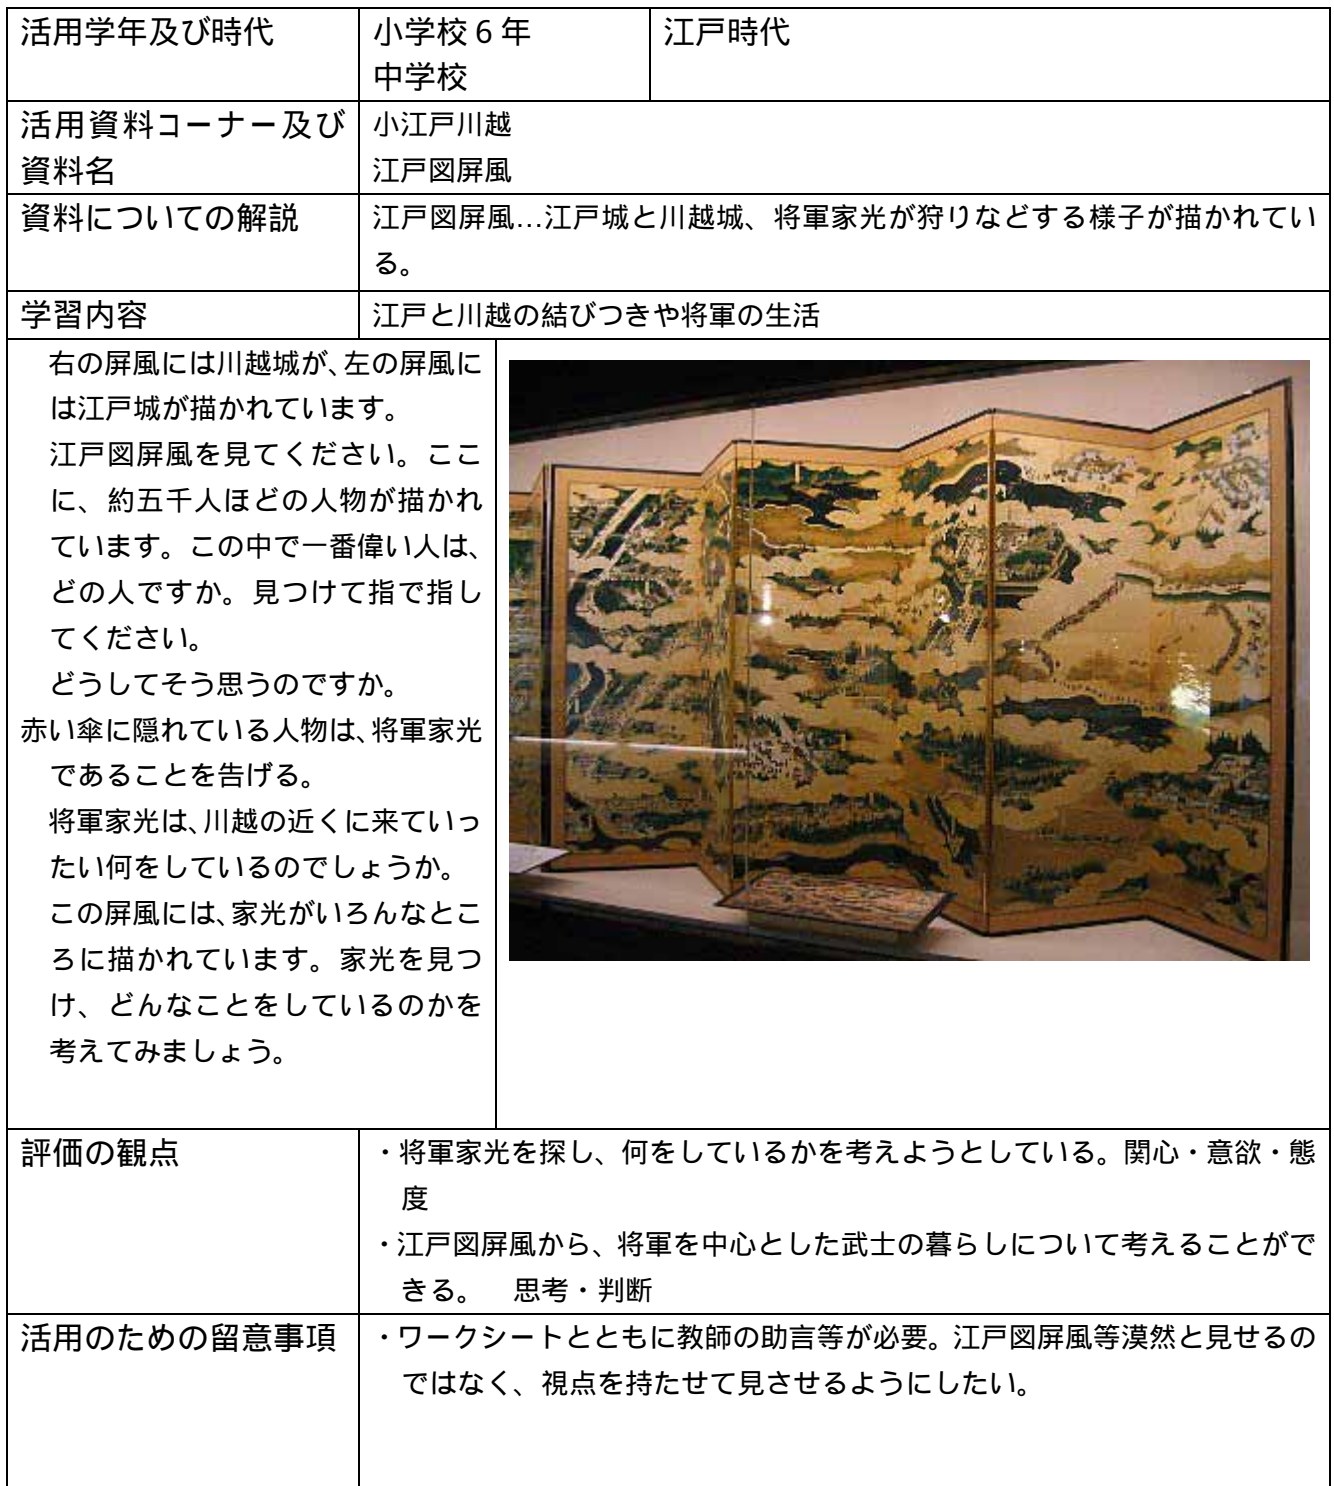 活用学年及び時代
小学校6年
中学校
江戸時代
活用資料コーナー及び
資料名
小江戸川越
江戸図屏風
資料についての解説
江戸図屏風…江戸城と川越城、将軍家光が狩りなどする様子が描かれてい
る。
学習内容
江戸と川越の結びつきや将軍の生活
右の屏風には川越城が、左の屏風に
は江戸城が描かれています。
江戸図屏風を見てください。ここ
に、約五千人ほどの人物が描かれ
ています。この中で一番偉い人は、
どの人ですか。見つけて指で指し
てください。
どうしてそう思うのですか。
赤い傘に隠れている人物は、将軍家光
であることを告げる。
将軍家光は、川越の近くに来ていっ
たい何をしているのでしょうか。
この屏風には、家光がいろんなとこ
ろに描かれています。家光を見つ
け、どんなことをしているのかを
考えてみましょう。
評価の観点
・将軍家光を探し、何をしているかを考えようとしている。関心・意欲・態
度
・江戸図屏風から、将軍を中心とした武士の暮らしについて考えることがで
きる。　思考・判断
活用のための留意事項
・ワークシートとともに教師の助言等が必要。江戸図屏風等漠然と見せるの
ではなく、視点を持たせて見させるようにしたい。